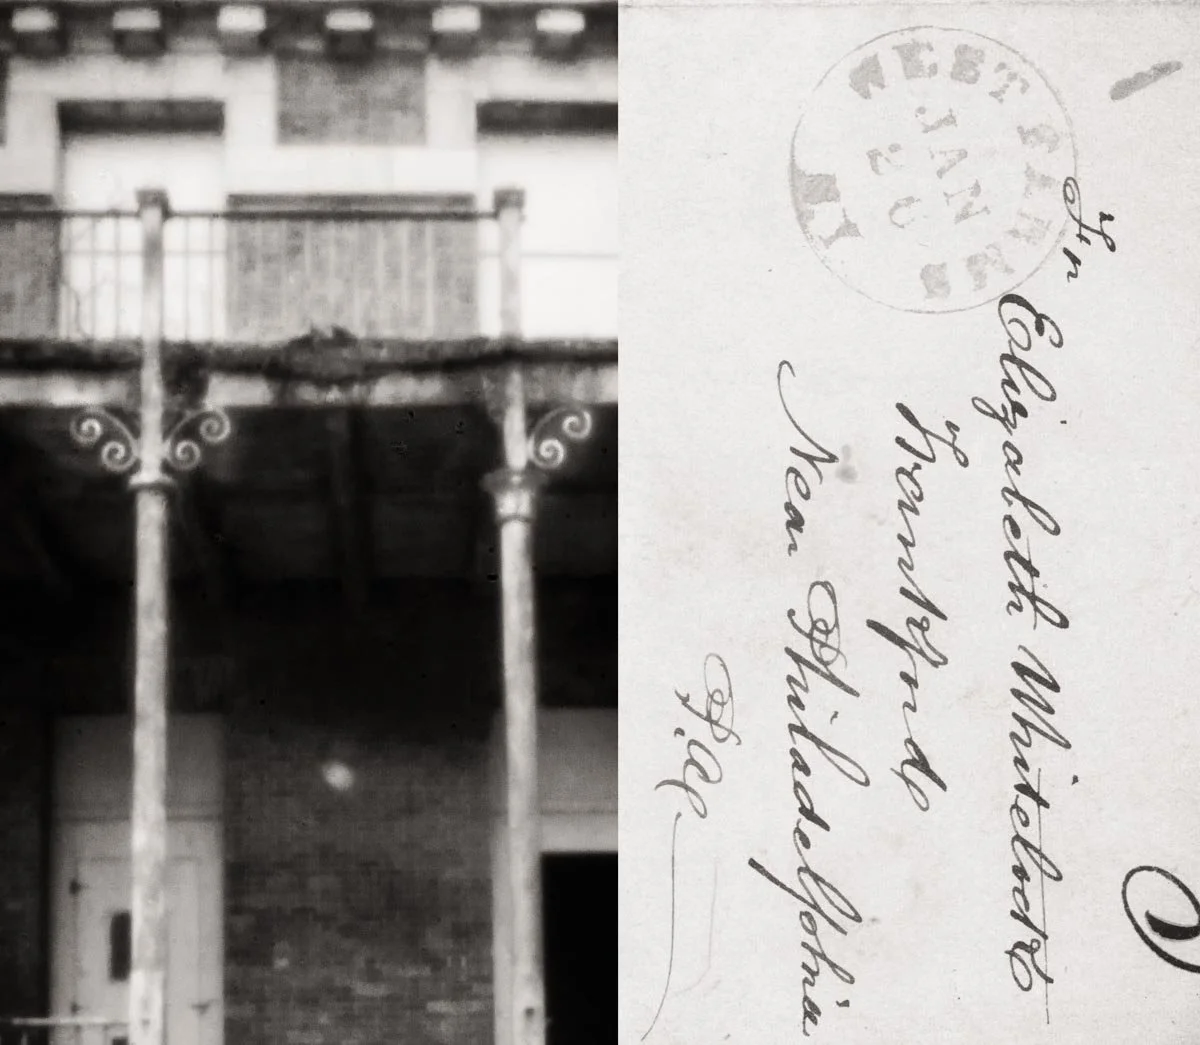 WEST FARMS
JAN
20
N.Y.
For
Elizabeth Whitelock
Frankford
Near Philadelphia
Pa.